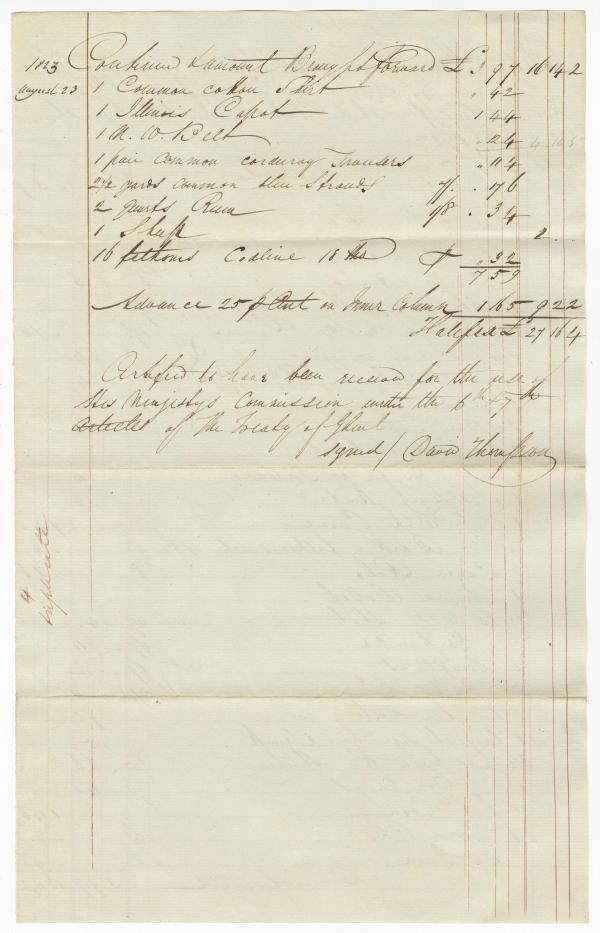 1823 Continued & amount Brought Forward £ 3 9 7 16 14 2
August 23 1 Common cotton Shirt " 4 2
1 Illinois Capot 1 4 4
1 N. W. Belt " 2 4
1 pair common corduroy Trousers " 11 4
2 1/2 yards common blue Strouds 7/. . 17 6
2 quarts Rum 1/8 . 3 4
1 Sheep 2
16 fathoms Codline 18 thd 3 2
7 5 9
Advance 25 p Cent on Inner Column 1 16 5 9 2 2
Halifax £ 27 16 4
Certified to have been received for the use of
His Majestys Commission under the 6th & 7th
Articles of the Treaty of Ghent
signed / David Thompson
4
triplicate